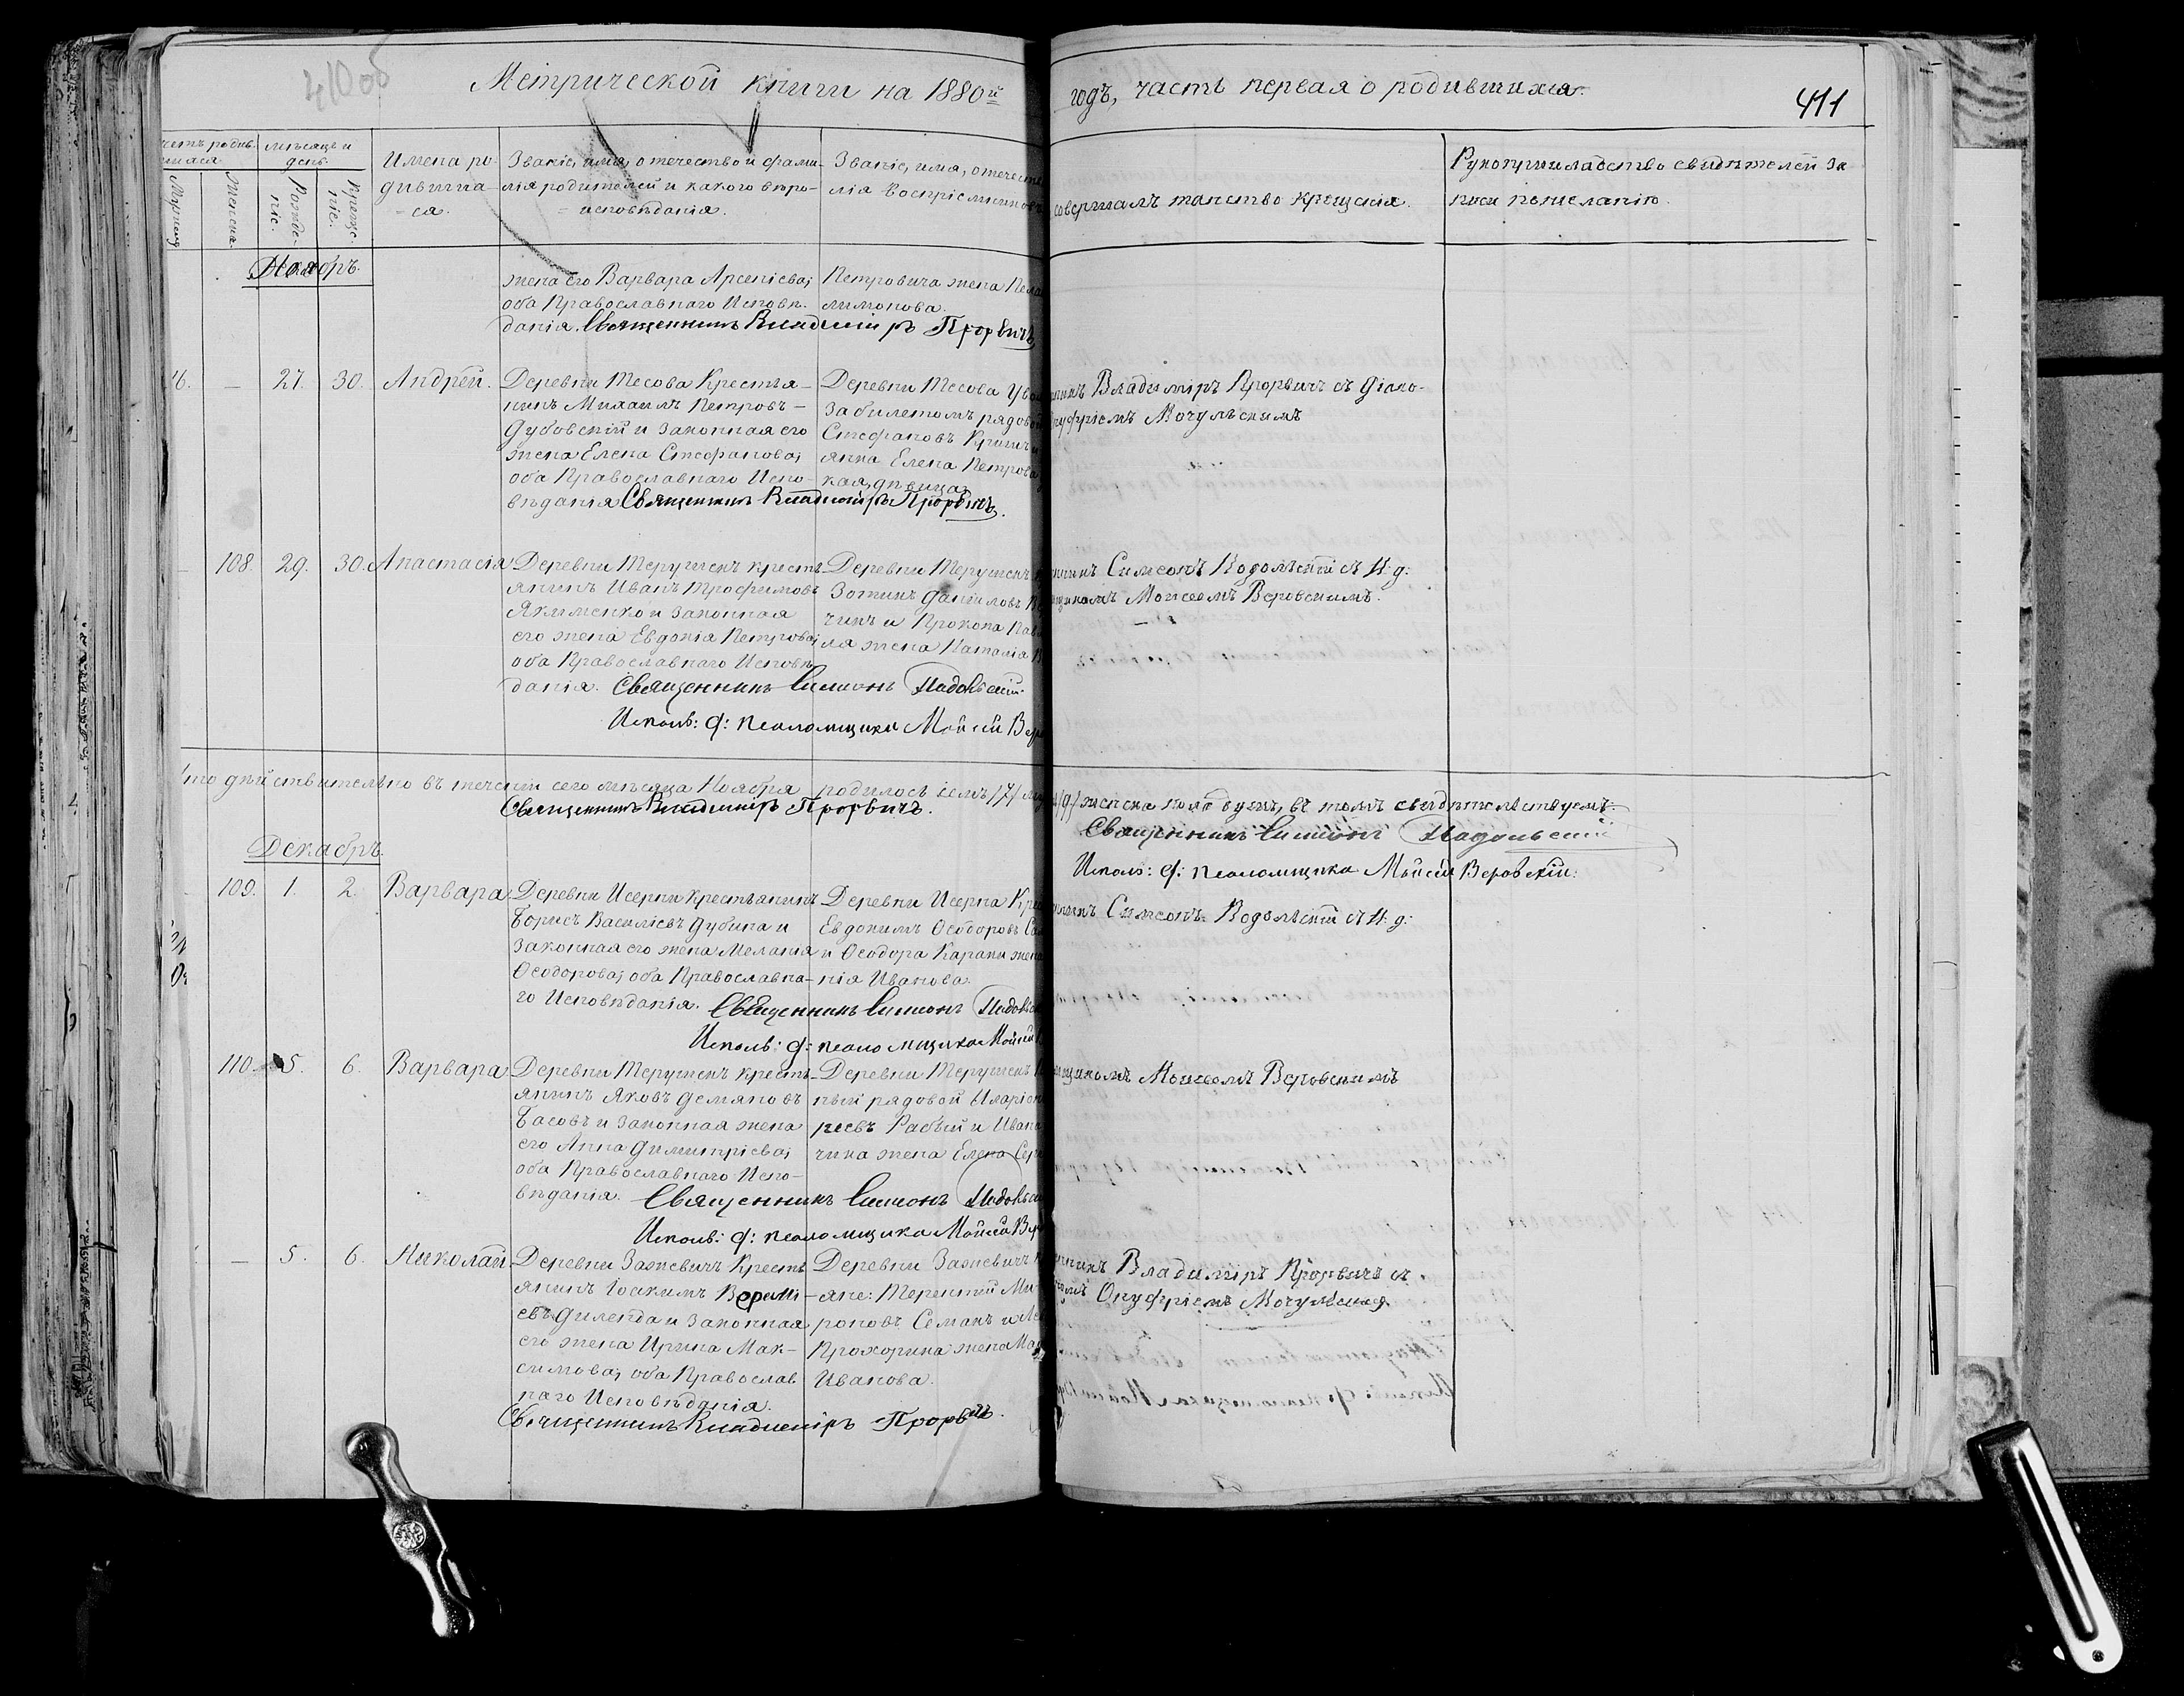 410об
Метрической книги на 1880й
годъ, часть первая о родившихся.
411
мѣсяцъ и
день.
Женска
Рожде-
ніе.
Креще-
ніе.
Имена ро-
дивша-
-ся.
Званіе, имя, отечество и фами-
лія родителей и какого вѣро-
= исповѣданія.
Званіе, имя, отечест
лія воспріемников
совершалъ таинство крещенія.
Рукоприкладство свидѣтелей за
писи по желанію.
Ноябрь.
жена его Варвара Арсеніева;
оба Православнаго Исповѣ-
данія. Священникъ Владиміръ Прорвичъ
Петровича жена Пела
лимонова.
6. — 27. 30. Андрей.
Деревни Тесова Крестья-
нинъ Михаилъ Петровъ-
Дубовскій и законная его
жена Елена Стефанова;
оба Православнаго Испо-
вѣданія Священникъ Владиміръ Прорвичъ.
Деревни Тесова
за билетомъ рядовой
Стефановъ
янка Елена Петрова
кая, дѣвица.
Владиміръ Прорвичъ съ Діако-
нуфріемъ Мочульскимъ
108. 29. 30. Анастасія
Деревни Терушекъ кресть-
янинъ Иванъ Трофимовъ
Якименко и законная
его жена Евдокія Петрова;
оба Православнаго Исповѣ-
данія. Священникъ Симеонъ Подольскій
Исполъ: д: псаломщика Мойсей
Деревни Терушекъ
Зотикъ Даніиловъ
чикъ и Прокопа
ля жена Наталія
Симеонъ Подольскій съ И: д:
щикомъ Моисеемъ Веровскимъ.
что дѣйствительно въ теченіи сего мѣсяца Ноября родилось семъ /7/
/9/ женска пола душъ, въ томъ свидѣтельствуемъ:
Священникъ Владиміръ Прорвичъ.
Священникъ Симеонъ Подольскій
Исполъ: д: псаломщика Мойсей Веровскій:
Декабрь
109. 1. 2. Варвара
Деревни Исерни крестьянинъ
Борисъ Василіевъ Дубина и
законная его жена Меланія
Ѳеодорова; оба Православна-
го Исповѣданія. Священникъ Симеонъ
Исполъ: д: псаломщика Мойсей
Деревни Исерна
Евдокимъ Ѳеодоровъ
и Ѳеодора Карапи жена
нія Иванова.
Симеонъ Подольскій съ И: д:
110. 5. 6. Варвара
Деревни Терушекъ кресть-
янинъ Яковъ Демяновъ
Басовъ и законная жена
его Анна Димитріева;
оба Православнаго Испо-
вѣданія. Священникъ Симеонъ
Исполъ: д: псаломщика Мойсей
Деревни Терушекъ
ный рядовой Иларіон
реевъ Рабый и Ивана
чика жена Елена
щикомъ Моисеемъ Веровскимъ
— 5. 6. Николай
Деревни Зажевичъ Кресть
янинъ Іоакимъ Ереміи-
евъ Диленда и законная
его жена Ирина Мак-
симова; оба Православ
наго Исповѣданія.
Священникъ Владиміръ Прорвичъ.
Деревни Зажевичъ
яне: Терентій Ми-
роновъ Семакъ и
Прохорика жена
Иванова.
Владиміръ Прорвичъ съ
Онуфріемъ